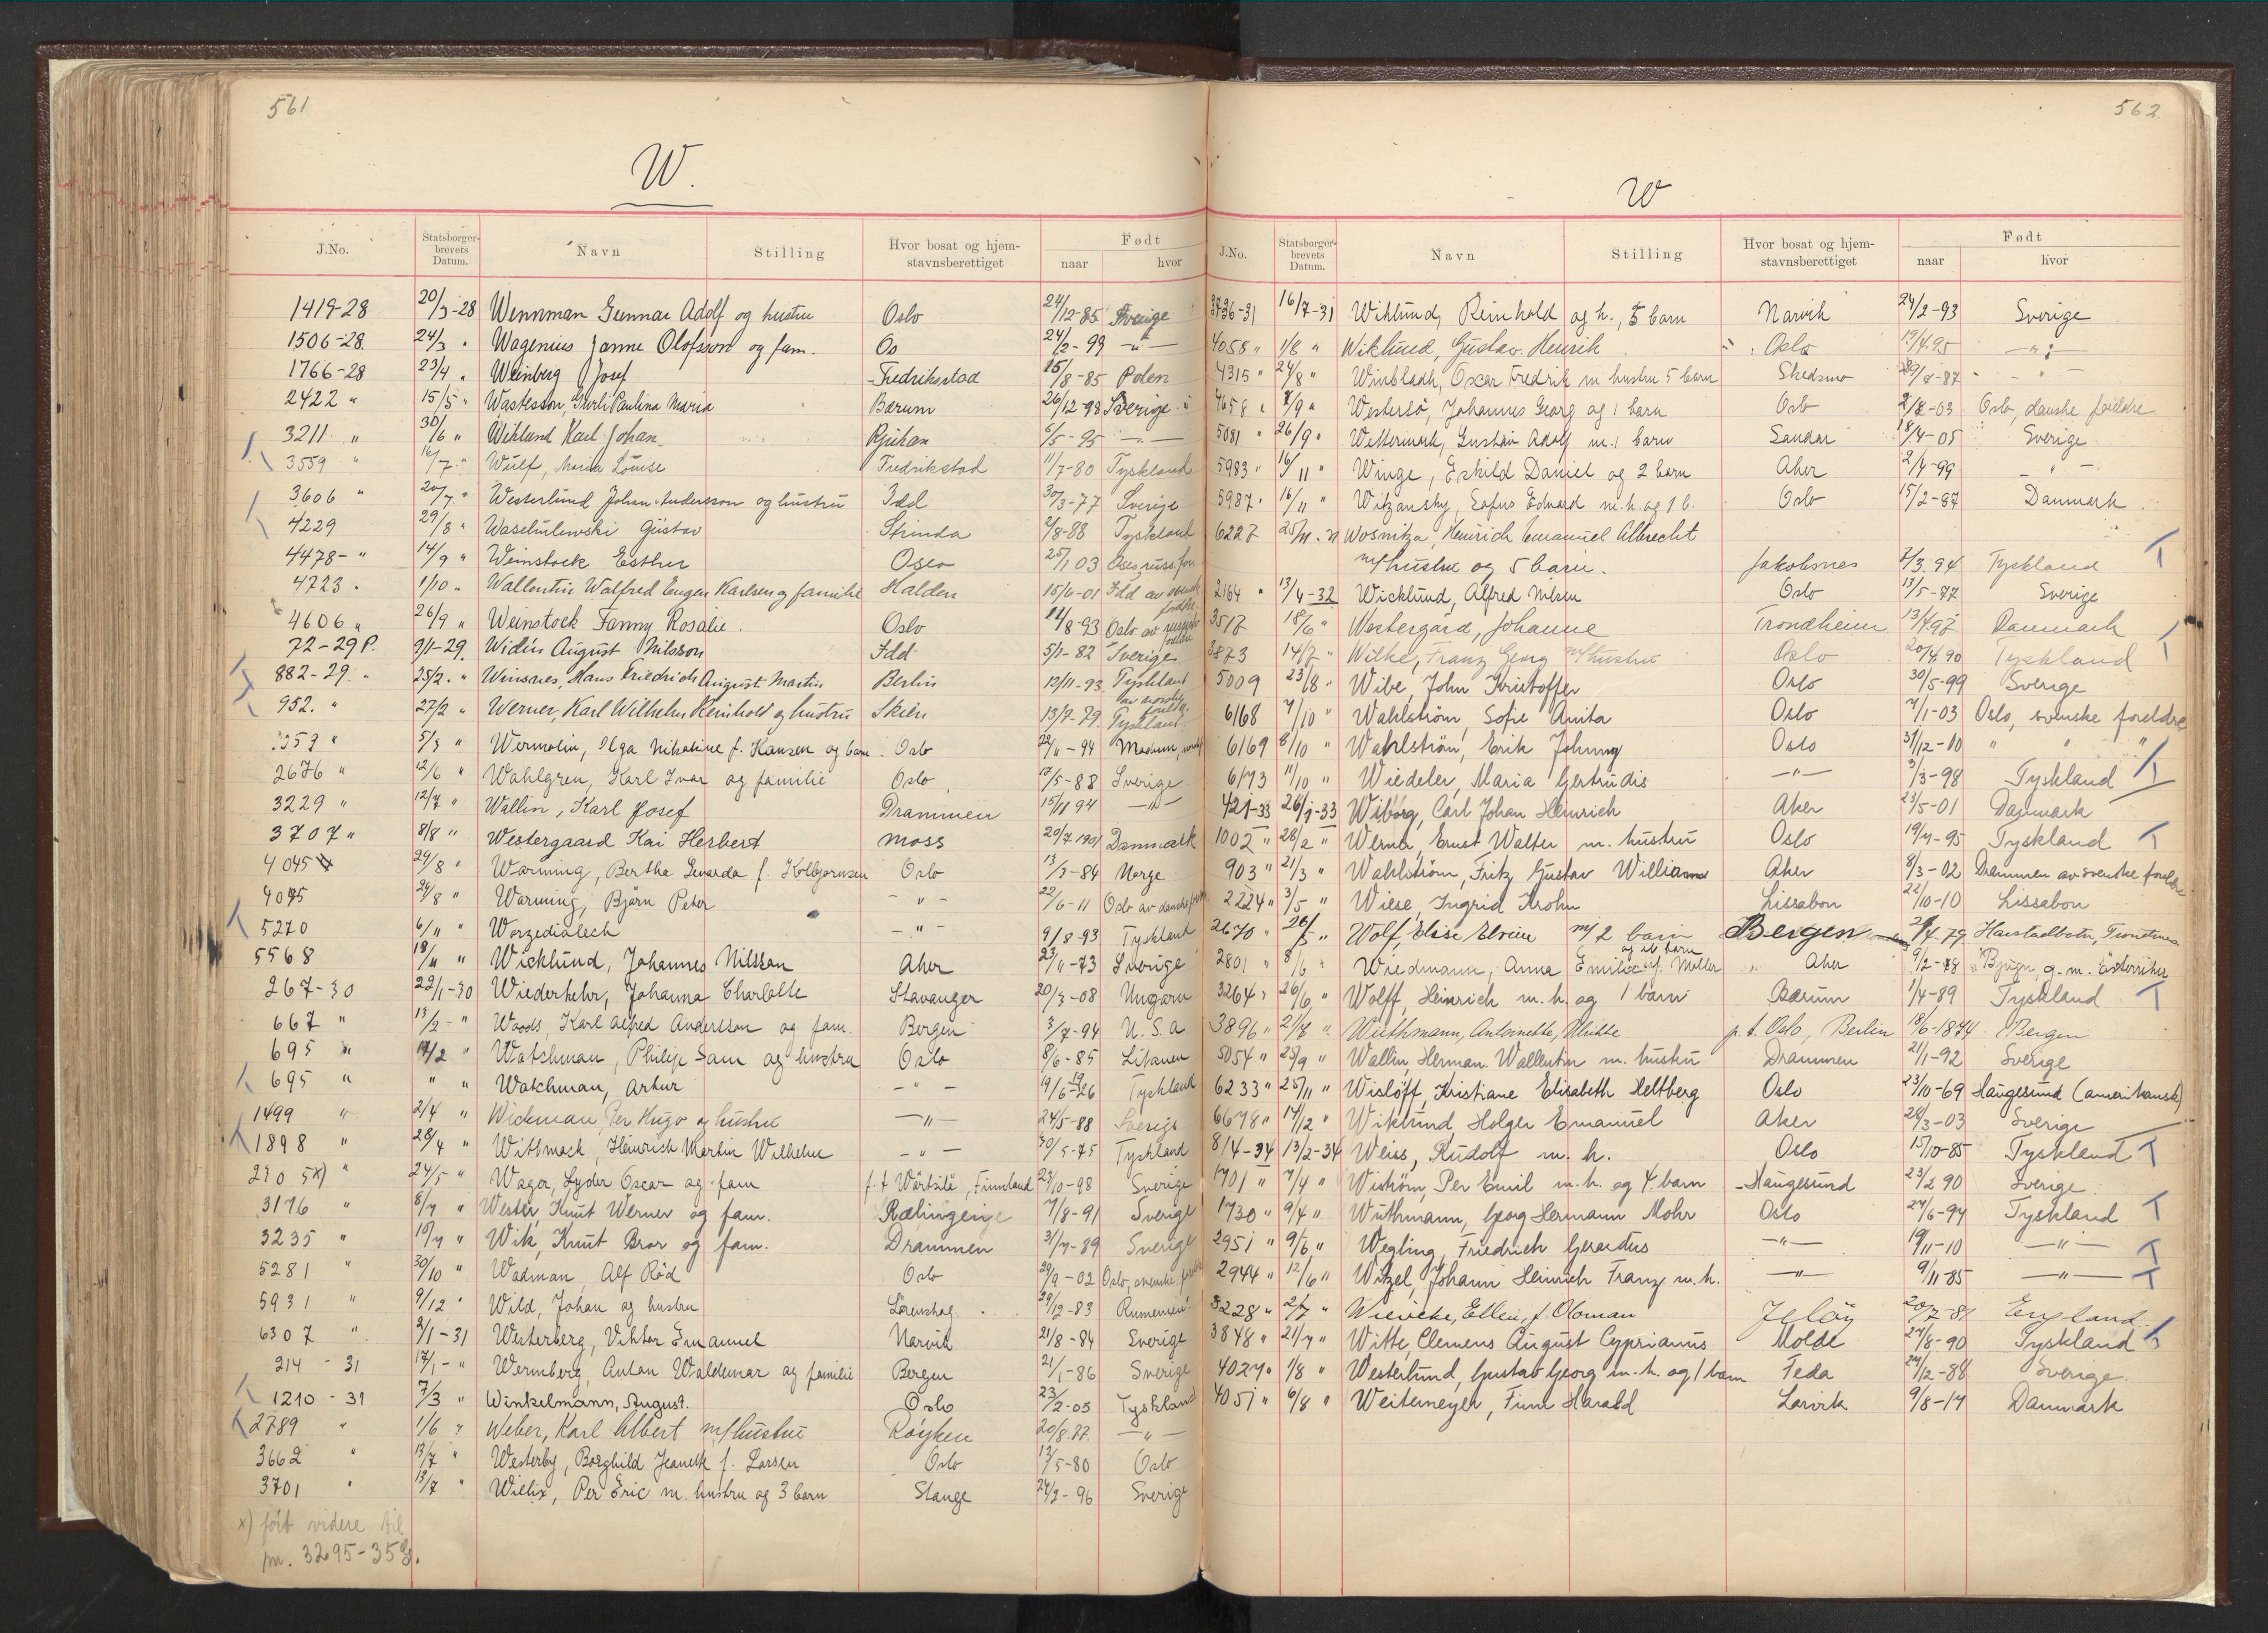 561
W.
J.No. Statsborgerbrevets Datum. Navn Stilling Hvor bosat og hjemstavnsberettiget Født naar hvor
1419-28 20/3-28 Wennman Gunnar Adolf og hustru Oslo 24/12-85 Sverige
1506-28 24/3 " Wagenius Janne Olofsson og fam. Os 24/2-99 -"-
1766-28 23/4 " Weinberg Josef Fredrikstad 15/8-85 Polen
2422 " 15/5 " Wastesson, Gurli Paulina Maria Bærum 26/12-98 Sverige
3211 " 30/6 " Wiklund Karl Johan Rjukan 6/5-95 -"-
3559 " 16/7 " Wulf, Maria Louise Fredrikstad 11/7-80 Tyskland
3606 " 20/7 " Westerlund Johan Andersson og hustru Idd 30/3-77 Sverige
4229 29/8 " Waschulewski Gustav Strinda 2/8-88 Tyskland
4478- " 14/9 " Weinstock Esther Oslo 25/1 03 Oslo russ. for
4723 " 1/10 " Wallentin Walfred Eugen Karlsen og familie Halden 15/6-01 Idd av svensk foreldre
4606 " 26/9 " Weinstock Fanny Rosalie. Oslo 14/8-93 Oslo av russiske foreldre
72-29 P. 9/1-29 Widén August Nilsson Idd 5/1-82 Sverige
882-29 " 25/2 " Winsnes, Hans Friedrich August Martin Berlin 12/11-93 Tyskland av norske foreldre
952. " 27/2 " Werner, Karl Wilhelm Reinhold og hustru Skien 13/7-79 Tyskland
959 " 5/3 " Wermelin, Olga Nikoline f. Hansen og barn Oslo 22/11-94 Modum, norsk
2676 " 12/6 " Wahlgren, Karl Ivar og familie Oslo 17/5-88 Sverige
3229 " 12/7 " Wallin, Karl Josef Drammen 15/11 94 -"-
3707 " 8/8 " Westergaard Kai Herbert Moss 20/7 1901 Danmark
4045 29/8 " Warming, Bertha Sevarda f. Kolbjørnsen Oslo 13/3-84 Norge
4095 29/8 " Warming, Bjørn Peter - " - 22/6-11 Oslo av danske for
5270 6/11 " Worzedialeck - " - 9/8-93 Tyskland
5568 18/11 " Wicklund, Johannes Nilsson Aker 23/11-73 Sverige
267-30 22/1-30 Wiederkehr, Johanna Charlotte Stavanger 20/3-08 Ungarn
667 " 13/2- " Woods, Karl Alfred Anderson og fam. Bergen 3/7-94 U.S.A
695 " 14/2 " Watchman, Philip Sam og hustru Oslo 8/6-85 Litauen
695 " " " Watchman, Artur - " - 19/6-1926 Tyskland
1499 " 2/4 " Wickman, Per Hugo og hustru -"- 24/5-88 Sverige
1898 " 28/4 " Wittmack, Heinrich Martin Wilhelm - " - 30/5-75 Tyskland
210 5x) " 24/5 " Wager, Lyder Oscar og fam f.t Wärtsilä, Finnland 27/10-98 Sverige
3176 " 8/7 " Wester, Knut Werner og fam. Rælingen 7/8-91 Sverige
3235 " 10/7 " Wik, Knut Bror og fam. Drammen 31/7-89 Sverige
5281 " 30/10 " Wadman, Alf Röd Oslo 29/9-02 Oslo, svenske foreldre
5931 " 9/12 " Wild, Johan og hustru Lørenskog 29/12-83 Rumenien
6307 " 2/1-31 Westerberg, Viktor Emanuel Narvik 21/8-84 Sverige
214 - 31 17/1- " Wermberg, Anton Waldemar og familie Bergen 21/1-86 Sverige
1210 - 31 7/3 " Winkelmann, August. Oslo 23/2-05 Tyskland
2789 " 1/6 " Weber, Karl Albert m/hustru Røyken 20/8.77 -"-
3662 " 13/7 " Westerby, Borghild Jeanette f. Larsen Oslo 12/5-80 Oslo
3701 " 13/7 " Willix, Per Eric m. hustru og 3 barn Stange 24/2-96 Sverige
x) ført videre til
pn. 3295-35 J.
562
W
J.No. Statsborgerbrevets Datum. Navn Stilling Hvor bosat og hjemstavnsberettiget Født naar hvor
3836-31 16/7-31 Wiklund, Reinhold og h., 5 barn Narvik 24/2-93 Sverige
4058 " 1/8 " Wiklund, Gustav Henrik Oslo 19/4.95 -"-
4315 " 24/8 " Winbladh, Oscar Fredrik m hustru 5 barn Skedsmo 29/7-87 - " -
4658 " 7/9 " Westersø, Johannes Georg og 1 barn Oslo 2/8-03 Oslo, danske foreldre
5081 " 26/9 " Wettermark, Gustav Adolf m. 1 barn Sandar 18/4-05 Sverige
5983 " 16/11 " Winge, Eskild Daniel og 2 barn Aker 2/4-99 - " -
5987 " 16/11 " Witzansky, Sofus Edvard m. h. og 1 b. Oslo 15/2-87 Danmark
6227 25/11 - " Wosnitza, Heinrich Emanuel Albrecht
m/hustru og 5 barn. Jakobsnes 2/3.94 Tyskland
2164 " 13/4-32 Wicklund, Alfred Nilsen Oslo 13/5-77 Sverige
3517 18/6 " Westergård, Johanne Trondheim 13/4.97 Danmark
3873 14/7 " Wilke, Franz Georg m/hustru Oslo 20/4.90 Tyskland
5009 23/8 " Wibe, John Kristoffer Oslo 30/5-99 Sverige
6168 7/10 " Wahlström, Sofie Anita Oslo 7/1-03 Oslo, svenske foreldre
6169 8/10 " Wahlström, Erik Johnny Oslo 31/12-10 " " "
6173 11/10 " Wiedeler, Maria Gertrudis -"- 3/3-98 Tyskland
421-33 26/1-33 Wiborg, Carl Johan Heinrich Aker 23/5-01 Danmark
1002 " 28/2 " Werner, Ernst Walter m. hustru Oslo 19/7-95 Tyskland
903 " 21/3 " Wahlström, Fritz Gustav William Aker 8/3-02 Drammen av svenske foreldre
2224 " 3/5 " Wiese, Ingrid Krohn Lissabon 22/10-10 Lissabon
2670 " 26/5 " Wolf, Elise Elvine m/ 2 barn Bergen 29/4-79 Harstadbotn, Trondenes
2801 " 8/6 " Wiedmann, Anna Emilie f. Møller Aker 9/2-78 Bjugn, g.m. Österriker
3264 " 26/6 " Wolff, Heinrich m. h. og 1 barn Bærum 1/4-89 Tyskland
3896 " 21/8 " Wuthmann, Antoinette, Ulrikke p. t. Oslo, Berlin 18/6-1874 Bergen
5054 " 25/9 " Wallin, Herman Wallentin m. hustru Drammen 21/1-92 Sverige
6233 " 25/11 " Wisløff, Kristiane Elisabeth Heltberg Oslo 23/10-69 Haugesund (amerikansk)
6678 " 14/12 " Wiklund, Holger Emanuel Aker 28/3-03 Sverige
814-34 13/2-34 Weiss, Rudolf m. h. Oslo 15/10-85 Tyskland
1701 " 7/4 " Wiström, Per Emil m. h. og 4 barn Haugesund 23/2 90 Sverige
1730 " 9/4 " Wuthmann, Georg Hermann Mohr Oslo 24/6-94 Tyskland
2951 " 9/6 " Wegling, Friedrich Gerardus -"- 19/11-10 -"-
2944 " 12/6 " Witzel, Johann Heinrich Franz m. h. -"- 9/11-85 -"-
3228 " 2/7 " Wievicke, Ellen, f Oloman Jeløy 20/7-81 England
3848 " 21/7 " Witte, Clemens August Cyprianus Molde 27/8-90 Tyskland
4027 " 1/8 " Westerlund, Gustav Georg m. h. og 1 barn Feda 24/12-88 Sverige
4051 " 6/8 " Weitemeyer, Finn Harald Larvik 9/8-14 Danmark